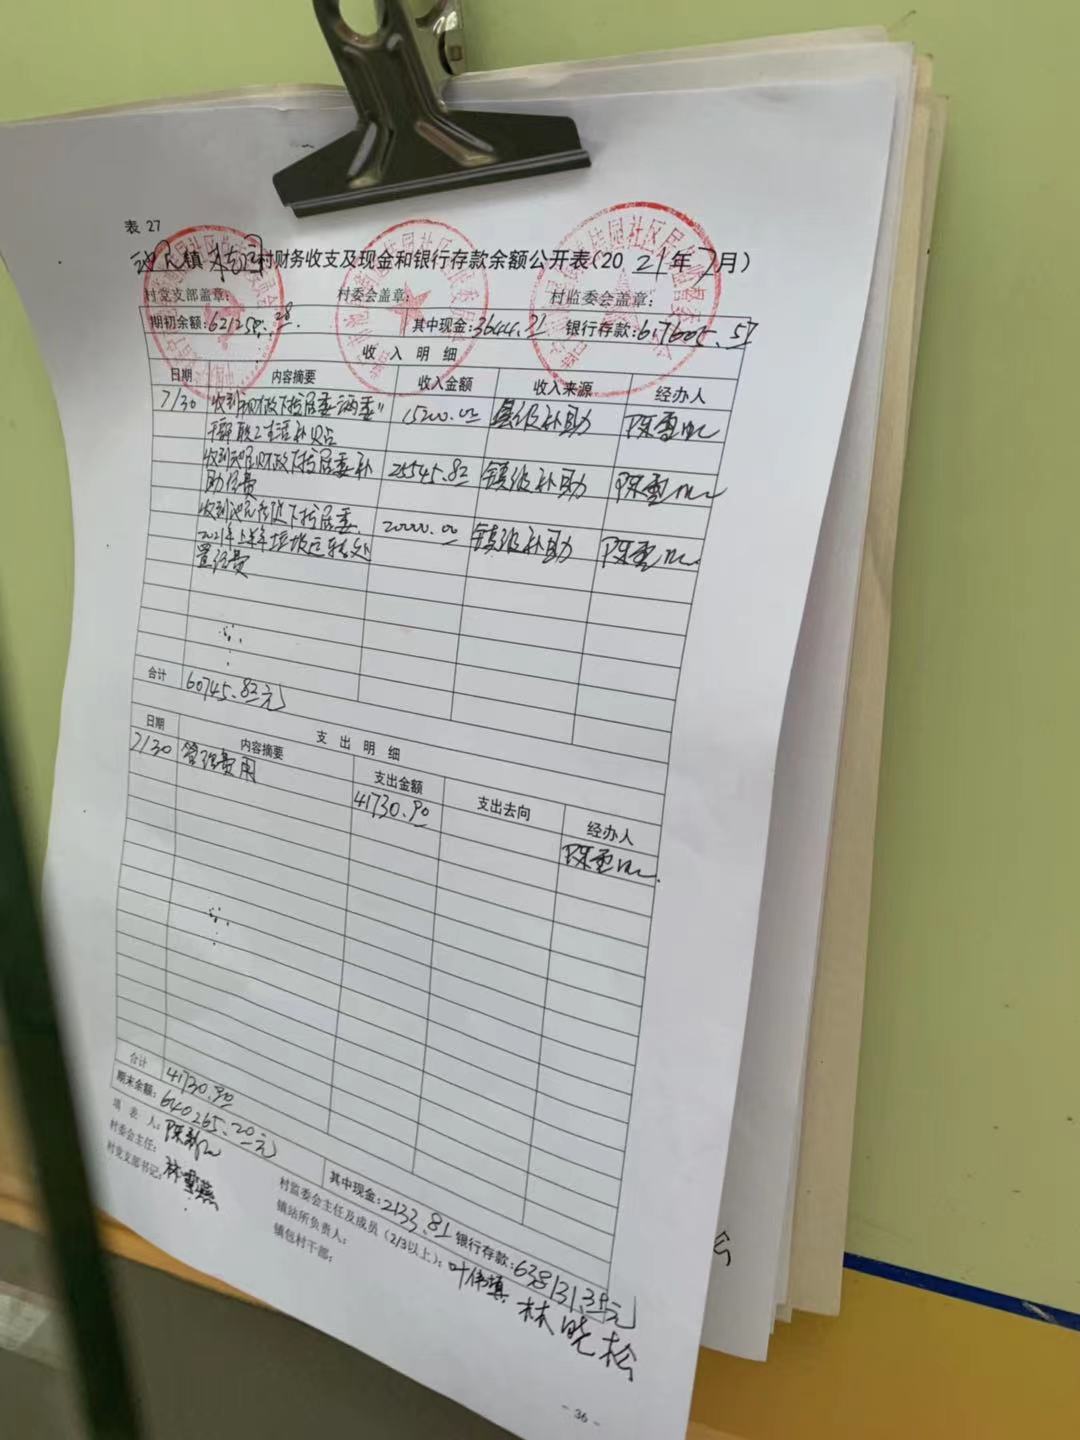 表 27
镇 村财务收支及现金和银行存款余额公开表(2021年7月)
村党支部盖章: 村委会盖章: 村监委会盖章:
期初余额:621250.28 其中现金:3644.71 银行存款:617605.57
收 入 明 细
日期 内容摘要 收入金额 收入来源 经办人
7/30 收到 财政下拨居委"两委" 15200.00 县级补助
干部 生活补贴
收到池尾财政下拨居委补 25545.83 镇级补助
助经费
收到池尾 下拨居委 20000.00 镇级补助
2021年上半年垃圾运转处
置经费
合计 60745.83元
支 出 明 细
日期 内容摘要 支出金额 支出去向 经办人
7/30 管理费用 41730.90
合计 41730.90
期末余额:640265.20元 其中现金:2133.81 银行存款:638131.39元
填 表 人:
村委会主任: 村监委会主任及成员(2/3以上): 叶伟填 林晓松
村党支部书记: 林雪燕 镇站所负责人:
镇包村干部:
- 36 -